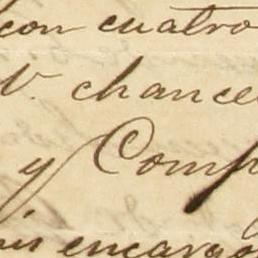 con cuatro
V. chance
y Comp
mis encargo